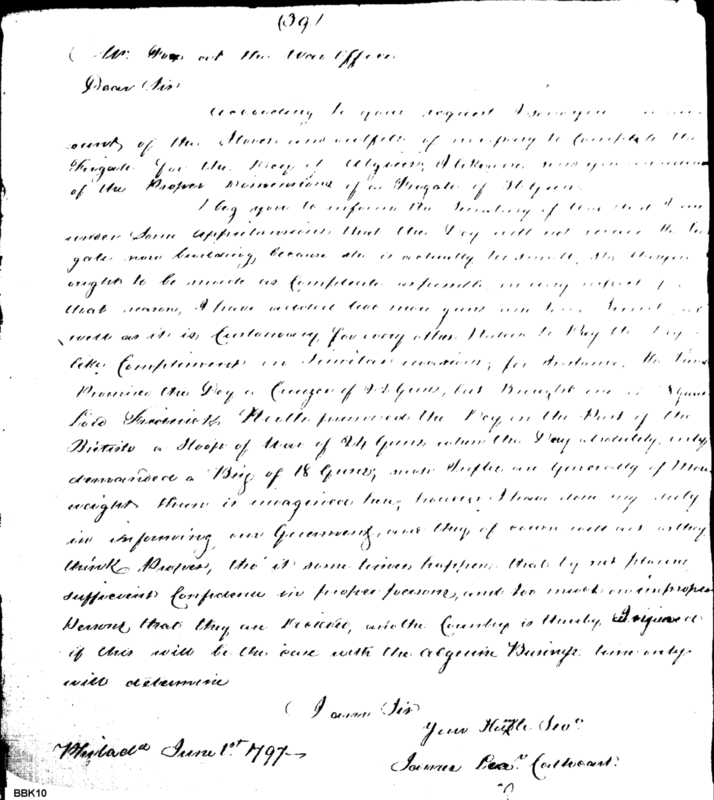 (39)
Mr. Fox at the War Office
Dear Sir
According to your request I
of the Stores and outfits necessary to Complete the
Frigate for the Dey of Algiers,
of the Proper Dimensions of a Frigate of Guns
I beg you to inform the Secretary of War that I am
under Some apprehensions that the Dey will not receive the Fri
gate now building, because she is actually too small, She
ought to be made as Complete as possible in every respect for
that reason, I have added two more guns
well as it is Customary for every other Nation to Pay the Dey
like Compliments on Similar occasions; for Instance, the
Promised the Dey a Cruizer of 22 Guns, but Brought one of
Lord Frederick North promised the Dey on the Part of the
British a Sloop of War of 24 Guns when the Dey absolutely only
demanded a Brig of 18 Guns, are Generally of More
weight than is imagined here, however I have done my duty
in informing our Government, and they of course will act as they
think Proper, tho' it some times happens that by not placing
sufficient Confidence in proper persons, and too much on improper
Persons, that they are Deceived, and the Country is thereby Injured
if this will be the case with the Algerine Business time only
will determine
I am Sir
Your Hble Servt
Philada June 1st 1797
James Leanr Cathcart
BBK10